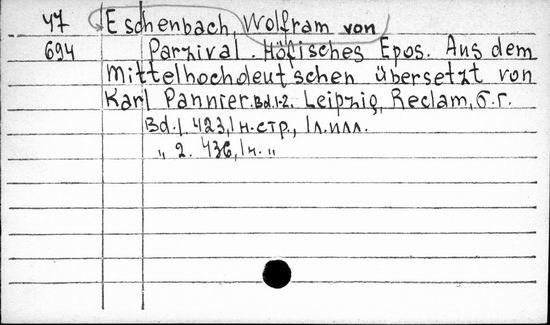 47 Eschenbach, Wolfram von
694 Parzival. Höfisches Epos. Aus dem
Mittelhochdeutschen übersetzt von
Karl Pannier. Bd. 1-2. Leipzig, Reclam, б.г.
Bd. 1. 423, 1 н. стр., 1 л. илл.
„ 2. 436, 1 н. „